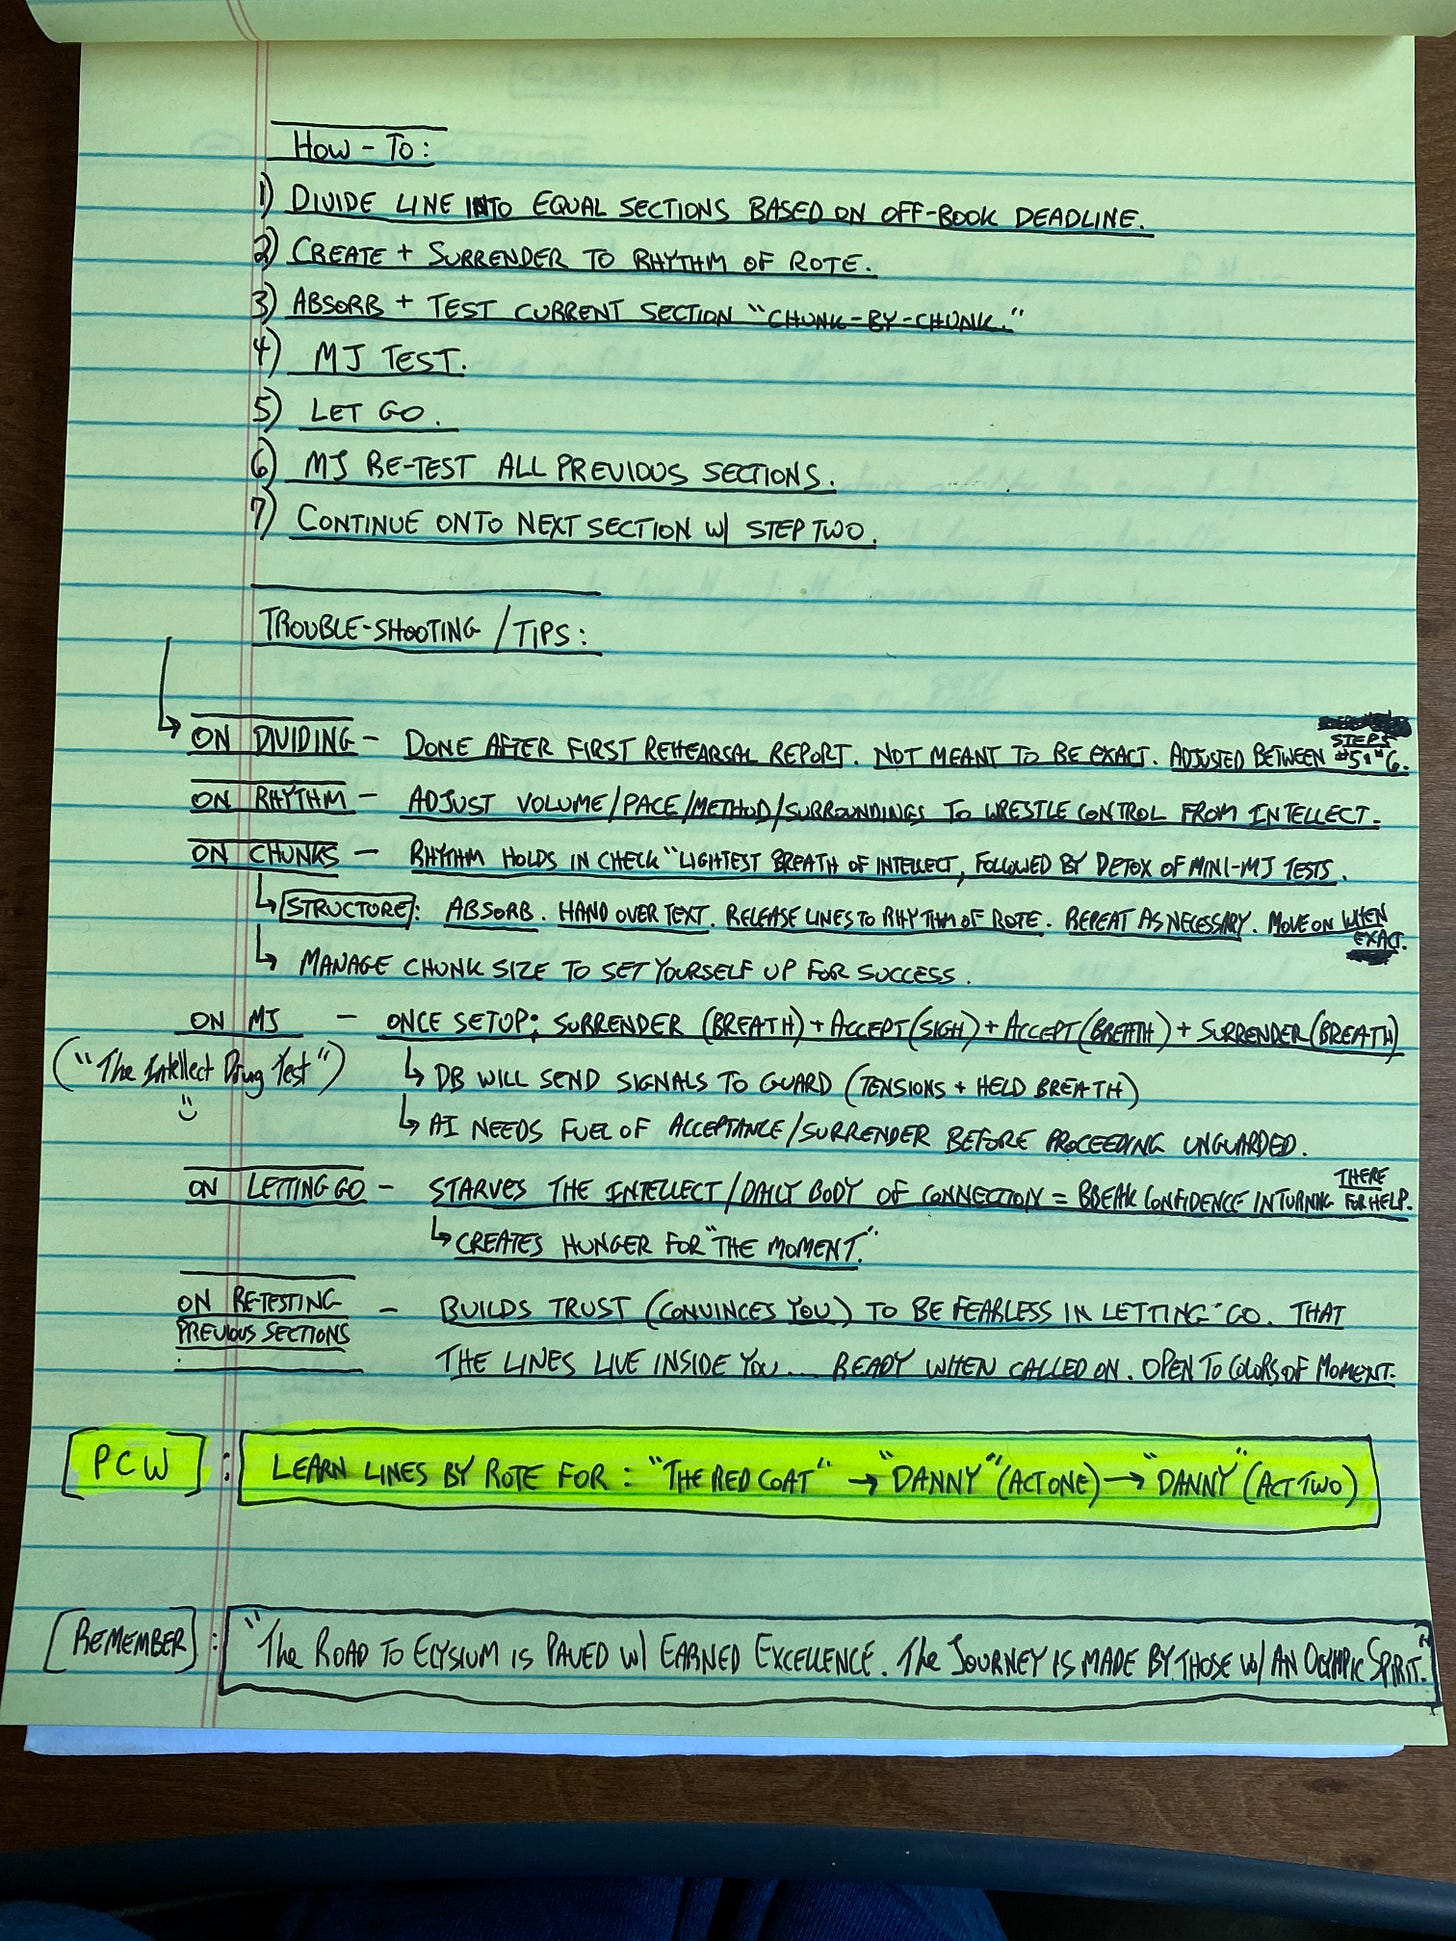 How-To:
1) DIVIDE LINE INTO EQUAL SECTIONS BASED ON OFF-BOOK DEADLINE.
2) CREATE + SURRENDER TO RHYTHM OF ROTE.
3) ABSORB + TEST CURRENT SECTION "CHUNK-BY-CHUNK."
4) MJ TEST.
5) LET GO.
6) MJ RE-TEST ALL PREVIOUS SECTIONS.
7) CONTINUE ONTO NEXT SECTION w/ STEP TWO.
TROUBLE-SHOOTING/TIPS:
ON DIVIDING - DONE AFTER FIRST REHEARSAL REPORT. NOT MEANT TO BE EXACT. ADJUSTED BETWEEN STEPS #5 + #6.
ON RHYTHM - ADJUST VOLUME/PACE/METHOD/SURROUNDINGS TO WRESTLE CONTROL FROM INTELLECT.
ON CHUNKS - RHYTHM HOLDS IN CHECK "LIGHTEST BREATH OF INTELLECT, FOLLOWED BY DETOX OF MINI-MJ TESTS.
↳ STRUCTURE: ABSORB. HAND OVER TEXT. RELEASE LINES TO RHYTHM OF ROTE. REPEAT AS NECESSARY. MOVE ON WHEN EXACT.
↳ MANAGE CHUNK SIZE TO SET YOURSELF UP FOR SUCCESS.
ON MJ - ONCE SETUP: SURRENDER (BREATH) + ACCEPT (SIGH) + ACCEPT (BREATH) + SURRENDER (BREATH)
("The Intellect Drug Test") ↳ DB WILL SEND SIGNALS TO GUARD (TENSIONS + HELD BREATH)
↳ AI NEEDS FUEL OF ACCEPTANCE/SURRENDER BEFORE PROCEEDING UNGUARDED.
ON LETTING GO - STARVES THE INTELLECT/DAILY BODY OF CONNECTION = BREAK CONFIDENCE IN TURNING THERE FOR HELP.
↳ CREATES HUNGER FOR "THE MOMENT."
ON RE-TESTING PREVIOUS SECTIONS - BUILDS TRUST (CONVINCES YOU) TO BE FEARLESS IN LETTING-GO. THAT
THE LINES LIVE INSIDE YOU... READY WHEN CALLED ON. OPEN TO COLORS OF MOMENT.
[PCW]: LEARN LINES BY ROTE FOR: "THE RED COAT" → "DANNY" (ACT ONE) → "DANNY" (ACT TWO)
[REMEMBER]: "The ROAD TO ELYSIUM IS PAVED w/ EARNED EXCELLENCE. The JOURNEY IS MADE BY THOSE w/ AN OLYMPIC SPIRIT."